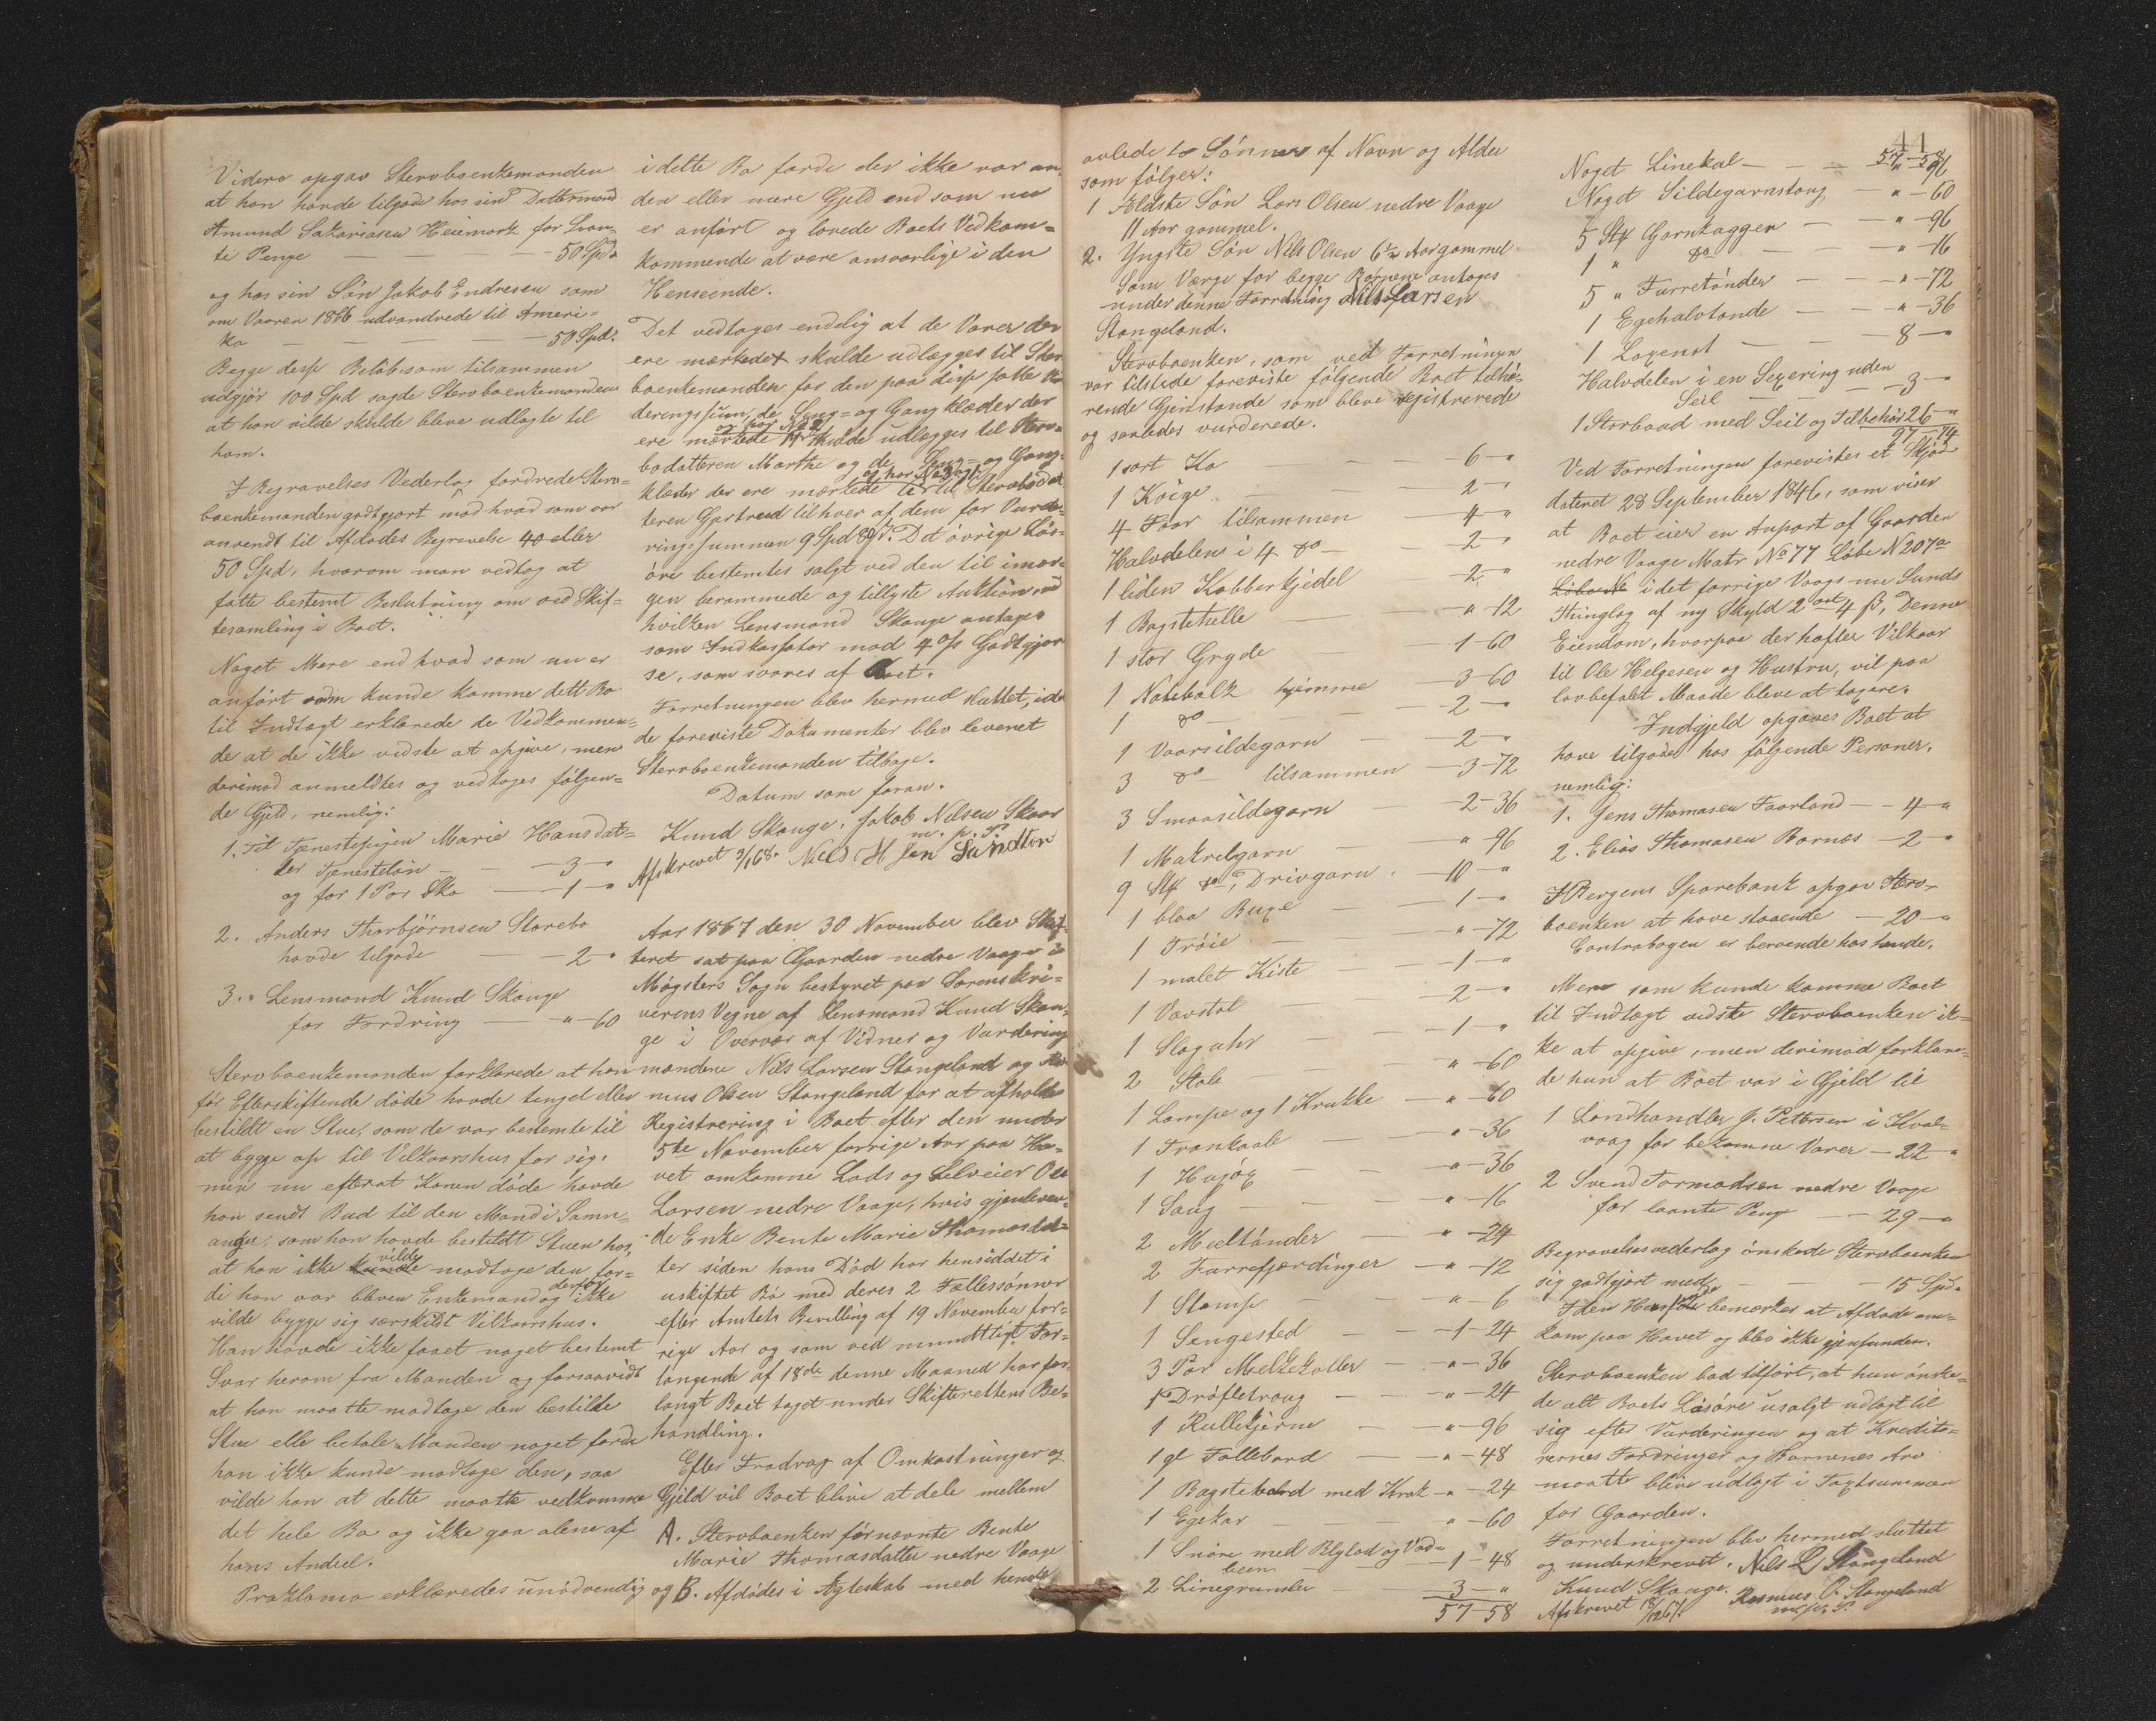 Videre opgav Stervboenkemanden
at han havde tilgode hos sin Dattermand
Amund Sakariasen Heiemark for laan-
te Penge — — — 50 Spd
og hos sin Søn Jakob Endresen som
om Vaaren 1866 udvandrede til Ameri-
ka — — — 50 Spd.
Begge disse Beløb som tilsammen
udgjør 100 Spd sagde Stervboenkemanden
at han vilde skulde bleve udlagte til
ham.
I Begravelses Vederlag fordrede Sterv-
boenkemanden godtgjort mod hvad som var
anvendt til Afdødes Begravelse 40 eller
50 Spd, hvorom man vedtog at
fatte bestemt Beslutning om ved Skif-
tesamling i Boet.
Noget Mere end hvad som nu er
anført som kunde komme dette Bo
til Indtægt erklærede de Vedkommen-
de at de ikke vidste at opgive, men
derimod anmeldtes og vedtoges følgen-
de Gjeld, nemlig:
1. Til Tjenestepigen Marie Hansdat-
ter Tjenesteløn — — 3 — "
og for 1 Par Sko — 1 — "
2. Anders Thorbjørnsen Storebø
havde tilgode — — 2 — "
3. " Lensmand Knud Skauge
for Fordring — " — 60
Stervboenkemanden forklarede at han
før Efterskiftende døde havde tinget eller
bestildt en Stue, som de var bestemte til
at bygge op til Vilkaarshus for sig.
men nu efterat Konen døde havde
han sendt Bud til den Mand i Samn-
anger, som han havde bestildt Stuen hos,
at han ikke kunde vilde modtage den for-
di han var bleven Enkemand og derfor ikke
vilde bygge sig særskildt Vilkaarshus.
Han havde ikke faaet noget bestemt
Svar herom fra Manden og forsaavidt
at han maatte modtage den bestilte
Stue elle betale Manden noget fordi
han ikke kunde modtage den, saa
vilde han at dette maatte vedkomme
det hele Bo og ikke gaa alene af
hans Andeel.
Proklama erklæredes unødvendig
i dette Bo fordi der ikke var an-
den eller mere Gjeld end som nu
er anført og lovede Boets Vedkom-
kommende at være ansvarlige i den
Henseende.
Det vedtages endelig at de Varer der
ere mærkede + skulde udlægges til Sterv
boenkemanden for den paa disse satte Vur
deringssum, de Seng- og Gangklæder der
ere mærkede og har No 2 skulde udlægges til Sterv-
bodatteren Marthe og de Seng- og Gang-
klæder der ere mærkede og har No 3 til Stervbodat
teren Gjertrud til hver af dem for Vurde-
ringssummen 9 Spd 80 s. Det øvrige Løs-
øre bestemtes solgt ved den til imor-
gen berammede og tillyste Auktion ved
hvilken Lensmand Skauge antages
som Indkassator mod 4 % Godtgjørel
se, som svares af Boet.
Forretningen blev hermed sluttet, idet
de foreviste Dokumenter blev leveret
Stervboenkemanden tilbage.
Datum som foran.
Knud Skauge. Jakob Nilsen Skaar
m. p. P.
Afskrevet 3/1 68. Niels H Sandtor
Aar 1867 den 30 November blev Skif-
teret sat paa Gaarden nedre Vaage i
Møgsters Sogn bestyret paa Sorenskri-
verens Vegne af Lensmand Knud Skau-
ge i Overvær af Vidner og Vurderings
mændene Nils Larsen Stangeland og Ras
mus Olsen Stangeland for at afholde
Registrering i Boet efter den under
5te November forrige Aar paa Ha-
vet omkomne Lods og Selveier Ole
Larsen nedre Vaage, hvis gjenleven-
de Enke Bente Marie Thomasdat-
ter siden hans Død har hensiddet i
uskiftet Bo med deres 2 Fællessønner
efter Amtets Bevilling af 19 November for-
rige Aar og som ved mundtligt For-
langende af 18de denne Maaned har for
langt Boet taget under Skifterettens Be-
handling.
Efter Fradrag af Omkostninger og
Gjeld vil Boet blive at dele mellem
A. Stervboenken førnævnte Bente
Marie Thomasdatter nedre Vaage
og B. Afdødes i Ægteskab med hende
avlede to Sønner af Navn og Alder
som følger:
1 Ældste Søn Lars Olsen nedre Vaage
11 Aar gammel.
2. Yngste Søn Nils Olsen 6½ Aar gammel
Som Værge for begge Børnene antages
under denne Forretning Nils Larsen
Stangeland.
Stervboenken, som ved Forretningen
var tilstede foreviste følgende Boet tilhø-
rende Gjenstande som bleve registrerede
og saaledes vurderede.
1 sort Ko — — 6 — "
1 Kvige — — 2 — "
4 Faar tilsammen — 4 — "
Halvdelen i 4 do — — 2 — "
1 liden Kobberkjedel — 2 — "
1 Bagstehelle — " — 12
1 stor Gryde — 1 — 60
1 Notebolk hjemme — 3 — 60
1 do — — 2 — "
1 Vaarsildegarn — 2 — "
3 do — tilsammen — 3 — 72
3 Smaasildegarn — 2 — 36
1 Makrelgarn — " 96
9 Stk do, Drivgarn — 10 — "
1 blaa Buxe — — 1 — "
1 Trøie — — " — 72
1 malet Kiste — — 1 — "
1 Vævstol — — 2 — "
1 Slaguhr — — 1 — "
2 Stole — — " — 60
1 Lampe og 1 Krukke — " — 60
1 Trankaale — " — 36
1 — — " — 36
1 Saug — — " — 16
2 Meeltønder — " — 24
2 Tørrefjerdinger — " — 12
1 Stamp — " — 6
1 Sengested — 1 — 24
3 Par Melkekoller — " — 36
1 Drøfletroug — " — 24
1 Rullekjerne — " — 96
1 gl Foldebord — " — 48
1 Bagstebord med Krak — " — 24
1 Egekar — " — 60
1 Snøre med Blylod og Vad-
been — 1 — 48
2 Linegrunsler — 3 — "
57 — 58
41
57 — 58
Noget Linekal — — " — 96
Noget Sildegarnstoug — " — 60
5 Stk Garnkagger — " — 96
1 " do — " — 16
5 " Tørretønder — " — 72
1 Egehalvtønde — " — 36
1 — 8 — "
Halvdelen i en Sexæring uden
Seil — — 3 — "
1 Storbaad med Seil og Tilbehør 26 — "
97 — 74
Ved Forretningen forevistes et Skjød
dateret 28 September 1846, som viser
at Boet eier en Anpart af Gaarden
nedre Vaage Matr No 77 Løbe N 207a
i det forrige Vaags nu Sunds
Thinglag af ny Skyld 2 ort 4 ß, Denne
Eiendom, hvorpaa der hæfter Vilkaar
til Ole Helgesen og Hustru, vil paa
lovbefalet Maade bleve at taxere.
Indgjeld opgaves Boet at
have tilgode hos følgende Personer,
nemlig:
1. Jens Thomasen Faarland — — 4 — "
2. Elias Thomasen Børnæs — 2 — "
I Bergens Sparebank opgav Sterv-
boenken at have staaende — 20 — "
Contrabogen er beroende hos hende.
Mere som kunde komme Boet
til Indtægt vidste Stervboenken ik-
ke at opgive, men derimod forklare-
de hun at Boet var i Gjeld til
1 Landhandler J. Pettersen i Kval-
vaag for bekomne Varer — 22 — "
2 Svend Tormodsen nedre Vaage
for laante Penge — 29 — "
Begravelsesvederlag ønskede Stervboenken
sig godtgjort med — — 15 Spd.
I den Henseende bemærkes at Afdøde om-
kom paa Havet og blev ikke gjenfunden.
Stervboenken bad tilført, at hun ønske-
de alt Boets Løsøre usolgt udlagt til
sig efter Vurderingen og at Kredito-
rernes Fordringer og Børnenes Arv
maatte blive udlagt i Taxtsummen
for Gaarden.
Forretningen blev hermed sluttet
og underskrevet. Nils L Stangeland
Knud Skauge. Rasmus O. Stangeland
Afskrevet 18/12 67. m. p. P.